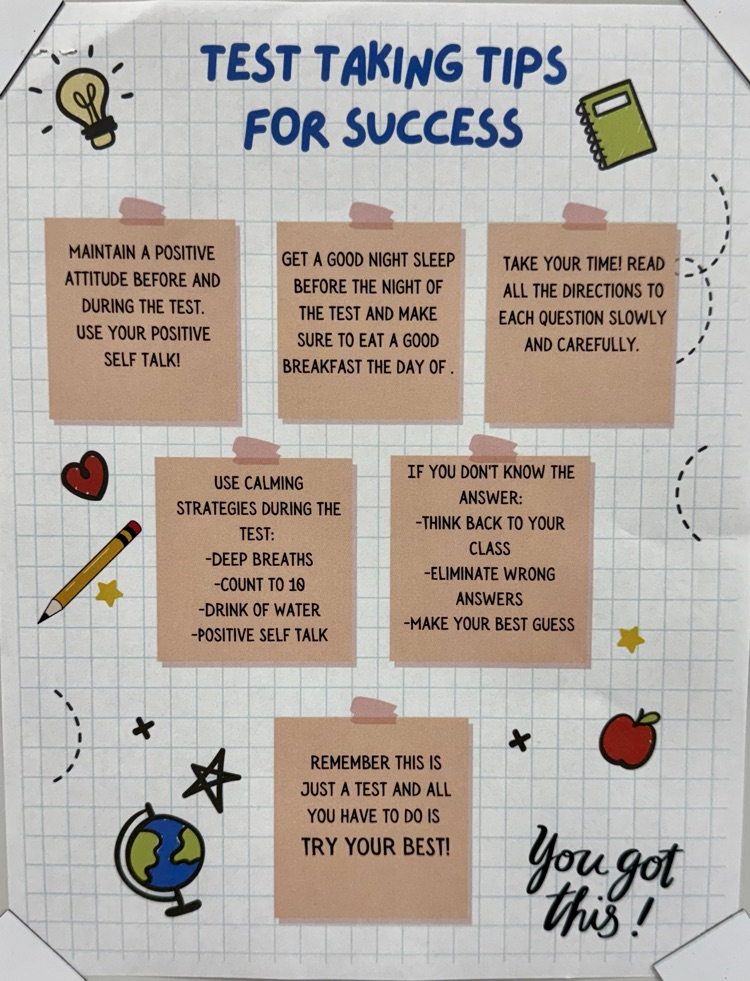 TEST TAKING TIPS
FOR SUCCESS
MAINTAIN A POSITIVE
ATTITUDE BEFORE AND
DURING THE TEST.
USE YOUR POSITIVE
SELF TALK!
GET A GOOD NIGHT SLEEP
BEFORE THE NIGHT OF
THE TEST AND MAKE
SURE TO EAT A GOOD
BREAKFAST THE DAY OF .
TAKE YOUR TIME! READ
ALL THE DIRECTIONS TO
EACH QUESTION SLOWLY
AND CAREFULLY.
USE CALMING
STRATEGIES DURING THE
TEST:
-DEEP BREATHS
-COUNT TO 10
-DRINK OF WATER
-POSITIVE SELF TALK
IF YOU DON'T KNOW THE
ANSWER:
-THINK BACK TO YOUR
CLASS
-ELIMINATE WRONG
ANSWERS
-MAKE YOUR BEST GUESS
REMEMBER THIS IS
JUST A TEST AND ALL
YOU HAVE TO DO IS
TRY YOUR BEST!
You got
this!